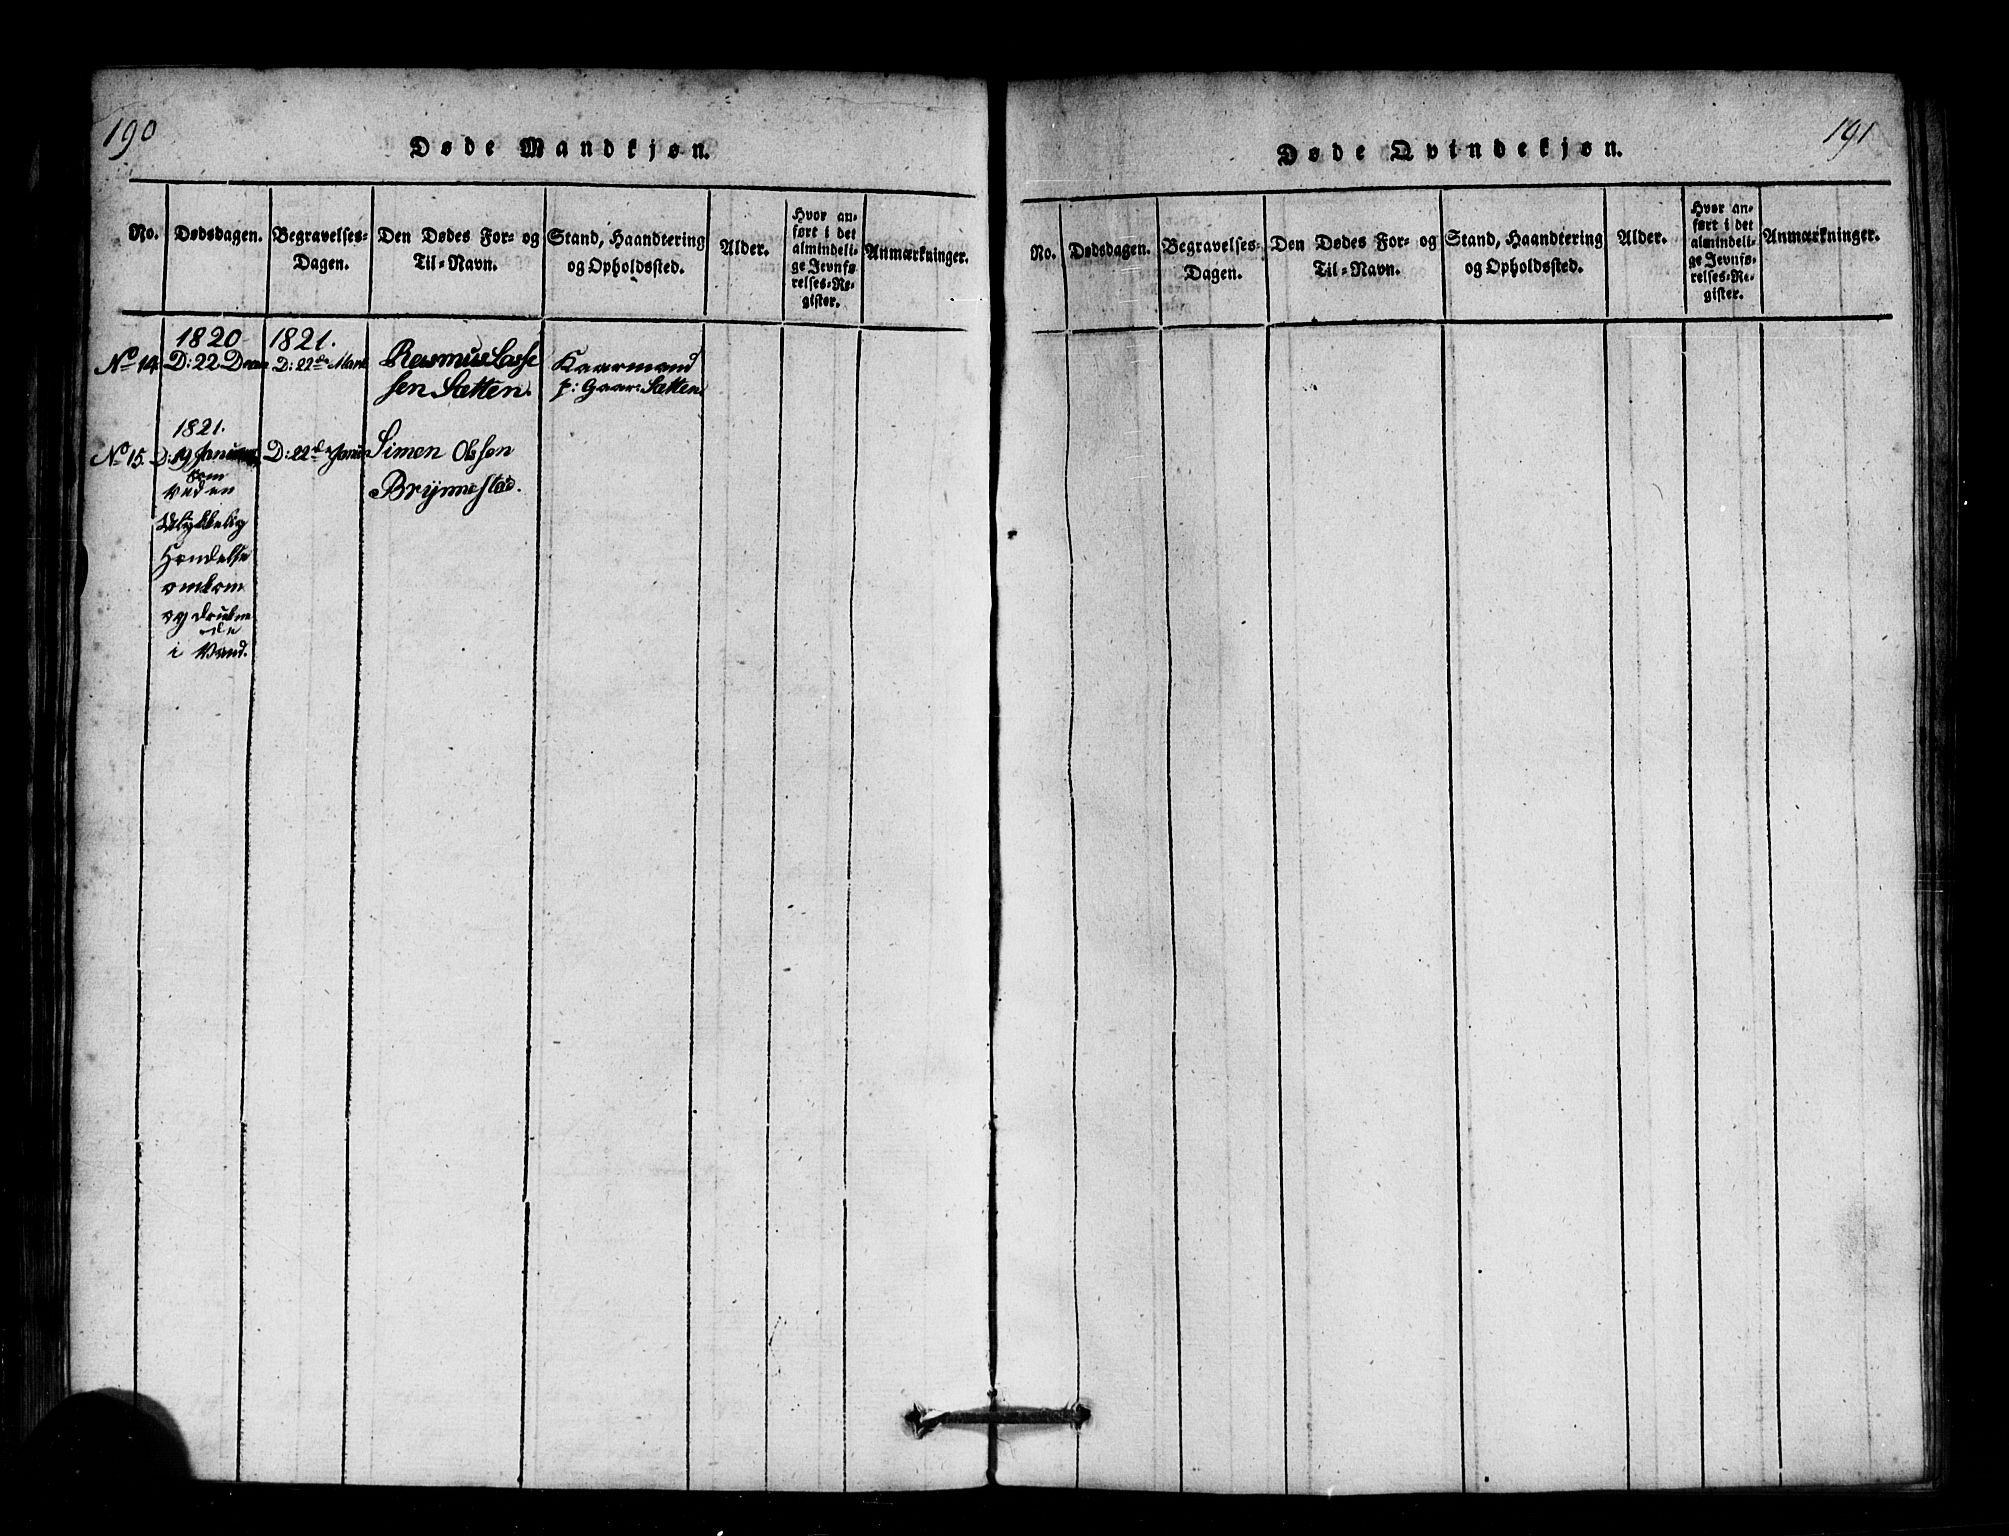 190
Døde Mandkjøn.
No.
Dødsdagen.
Begravelses-
Dagen.
Den Dødes For- og
Til-Navn.
Stand, Haandtering
og Opholdssted.
Alder.
Hvor an-
ført i det
almindeli-
ge Jevnfø-
relses-Re-
gister.
Anmærkninger.
1820
1821.
No 14.
D: 22 Decem
D: 22de Marti
Rasmus Lasse
sen Sætten.
Kaarmand
p: Gaar: Sætten
1821.
No 15.
D: 19 Januar
som
ved en
Ulykkelig
Hændelse
omkom
og drukne
de
i Vand.
D: 22d Janua
Simon Olssen
Brynnestad.
191
Døde Qvindekjøn.
No.
Dødsdagen.
Begravelses-
Dagen.
Den Dødes For- og
Til-Navn.
Stand, Haandtering
og Opholdssted.
Alder.
Hvor an-
ført i det
almindeli-
ge Jevnfø-
relses-Re-
gister.
Anmærkninger.